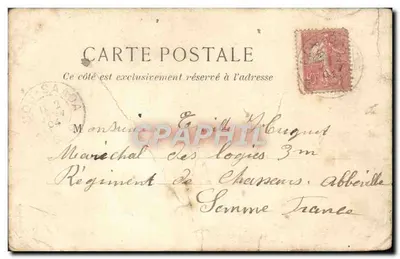 CARTE POSTALE
Ce côté est exclusivement réservé à l'adresse
Monsieur Emile Huguet
Maréchal des logis 3m
Régiment de Chasseurs Abbeville
Somme France
CARTAPHIL